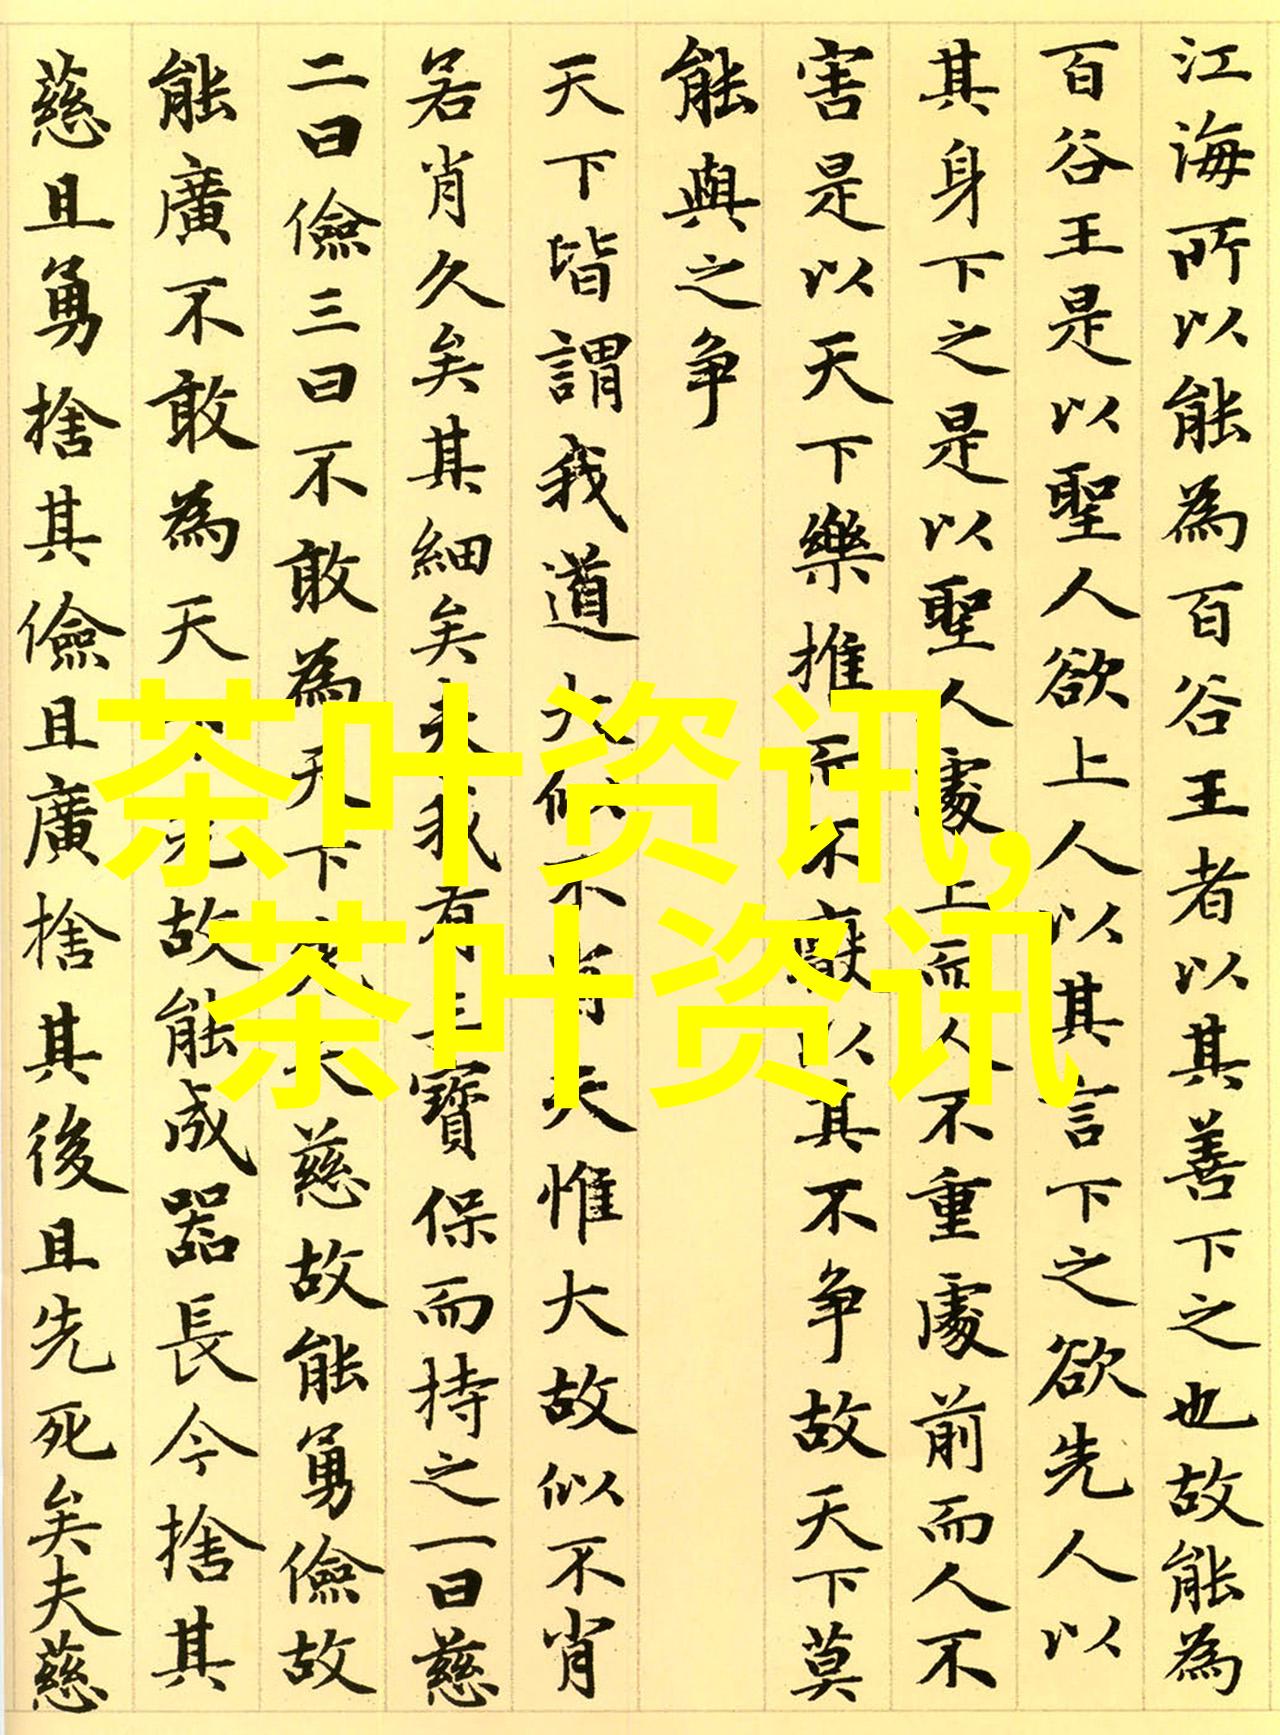 江海所以能為百谷王者以其善下之也故能為
百谷王是以聖人欲上人以其言下之欲先人以
其身下之是以聖人處上而人不重處前而人不
害是以天下樂推而不猒以其不争故天下莫
能與之争
天下皆謂我道大似不肖夫惟大故似不肖
若肖久矣其細矣夫我有三寶保而持之一曰慈
二曰儉三曰不敢為天下先夫慈故能勇儉故
能廣不敢為天下先故能成器長今捨其
慈且勇捨其儉且廣捨其後且先死矣夫慈
茶叶资讯,
茶叶资讯